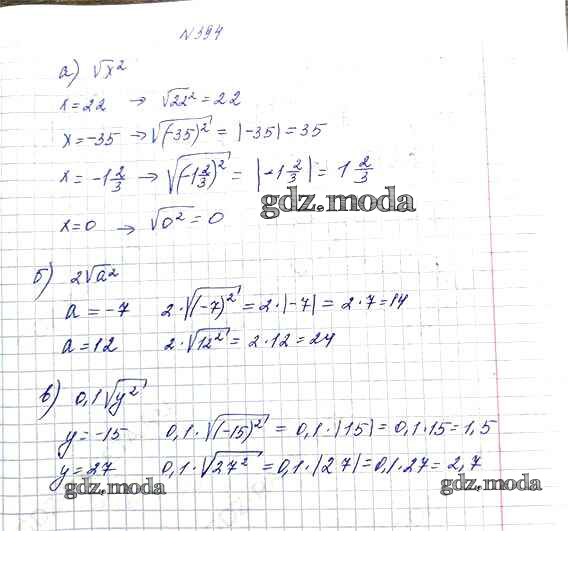 №394
а) √x²
x=22 → √22² = 22
x=-35 → √(-35)² = |-35| = 35
x = -1 2/3 → √(-1 2/3)² = |-1 2/3| = 1 2/3
gdz.moda
x=0 → √0² = 0
б) 2√a²
a = -7 2·√(-7)² = 2·|-7| = 2·7=14
a = 12 2·√12² = 2·12 = 24
в) 0,1√y²
y = -15 0,1·√(-15)² = 0,1·|15| = 0,1·15 = 1,5
y = 27 0,1·√27² = 0,1·|27| = 0,1·27 = 2,7
gdz.moda gdz.moda